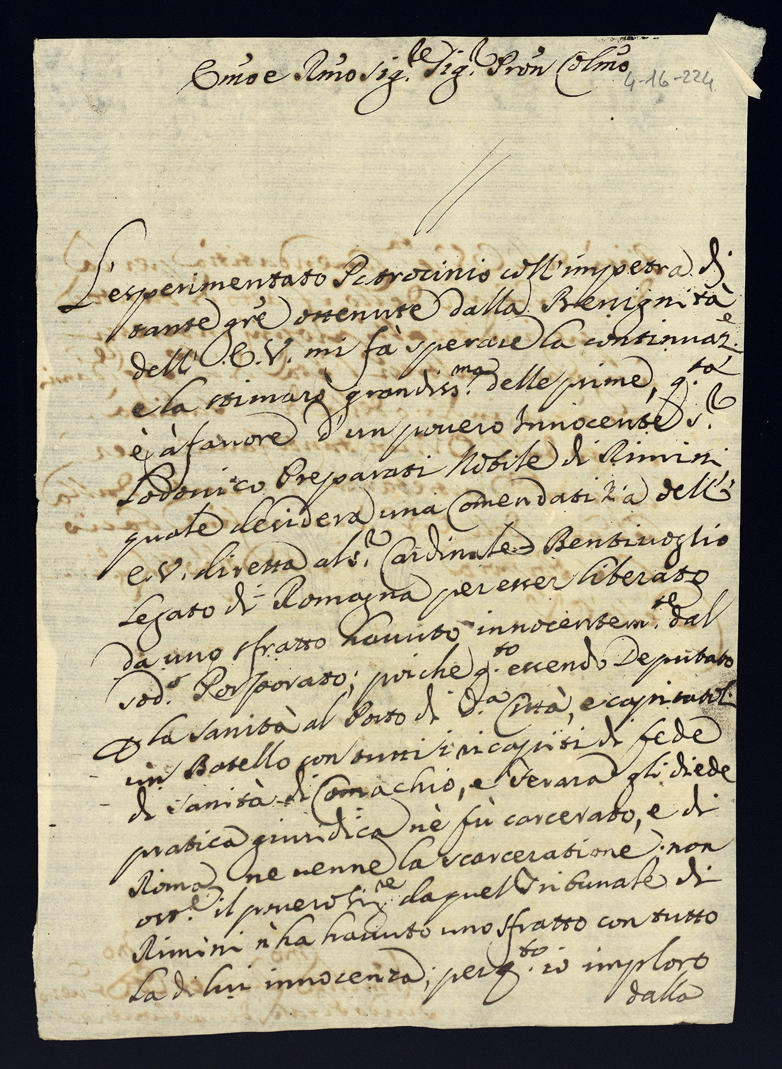 Em̃o e Rm̃o Sig.re Sig.r Prõn Colm̃o
4-16-224
L'esperimentato Patrocinio coll'impetra di
tante grẽ ottenute dalla Benignità
dell' E. V. mi fà sperare la continuaz.e
e la stimarò grandiss.ma delle prime, q.ta
è à favore d'un povero Innocente S.r
Lodovico Preparati Nobile di Rimini
quale desidera una Comendatizia dell'
E. V. diretta al S.r Cardinale Bentivoglio
Legato di Romagna per esser liberato
da uno sfratto havuto innocentem.te dal
sod.o Porporato; poiche q.to essendo Deputato
la Sanità al Porto di d.a Città, e capitatoli
un Batello con tutti i ricapiti di fede
di Sanità di Comachio, e Ferara gli diede
pratica giuridica nè fù carcerato, e di
Roma ne venne la scarceratione, non
ost.e il povero Sig.re da quel Tribunale di
Rimini n'ha havuto uno sfratto con tutto
la di lui innocenza; per q.to io imploro
dalla